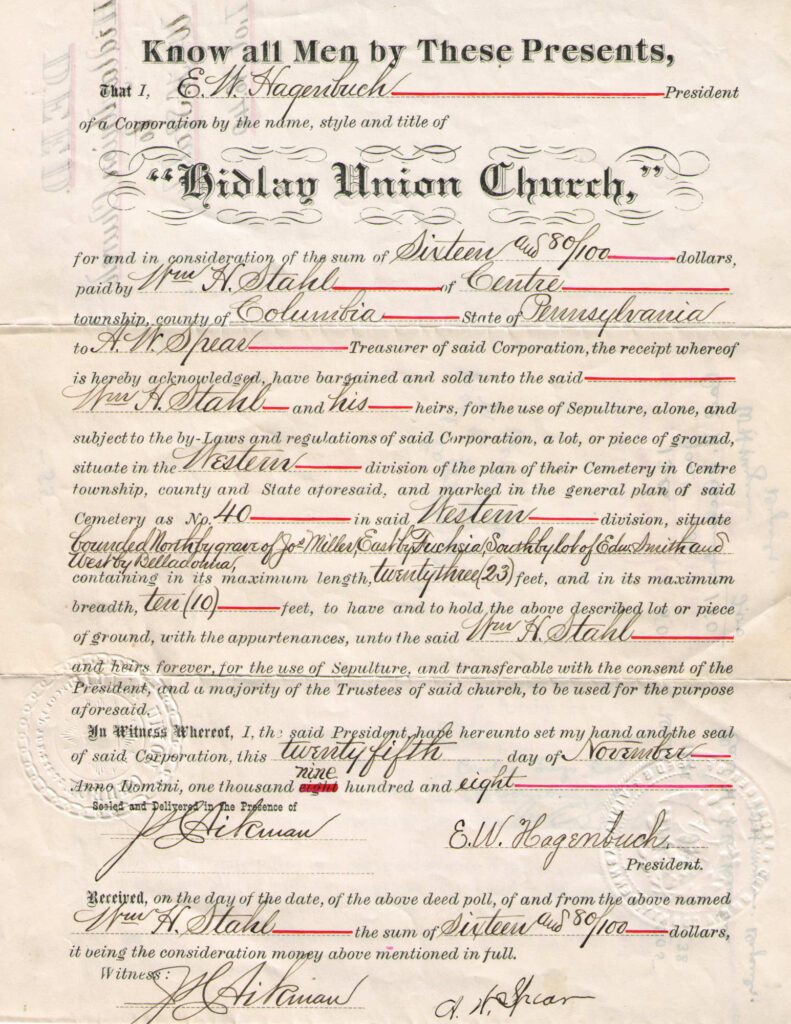 Know all Men by These Presents,
That I, E. W. Hagenbuch President
of a Corporation by the name, style and title of
"Hidlay Union Church,"
for and in consideration of the sum of Sixteen and 80/100 dollars,
paid by Wm H. Stahl of Centre
township, county of Columbia State of Pennsylvania
to A. W. Spear Treasurer of said Corporation, the receipt whereof
is hereby acknowledged, have bargained and sold unto the said
Wm H. Stahl and his heirs, for the use of Sepulture, alone, and
subject to the by-Laws and regulations of said Corporation, a lot, or piece of ground,
situate in the Western division of the plan of their Cemetery in Centre
township, county and State aforesaid, and marked in the general plan of said
Cemetery as No. 40 in said Western division, situate
bounded North by grave of Jos. Miller, East by Fuchsia, South by lot of Edw. Smith and
West by Belladonna,
containing in its maximum length, twenty three (23) feet, and in its maximum
breadth, ten (10) feet, to have and to hold the above described lot or piece
of ground, with the appurtenances, unto the said Wm H. Stahl
and heirs forever, for the use of Sepulture, and transferable with the consent of the
President, and a majority of the Trustees of said church, to be used for the purpose
aforesaid.
In Witness Whereof, I, the said President, have hereunto set my hand and the seal
of said Corporation, this twenty fifth day of November
nine
Anno Domini, one thousand eight hundred and eight
Sealed and Delivered in the Presence of
J H Aikman E. W. Hagenbuch.
President.
Received, on the day of the date, of the above deed poll, of and from the above named
Wm H. Stahl the sum of Sixteen and 80/100 dollars,
it being the consideration money above mentioned in full.
Witness:
J H Aikman A. W. Spear